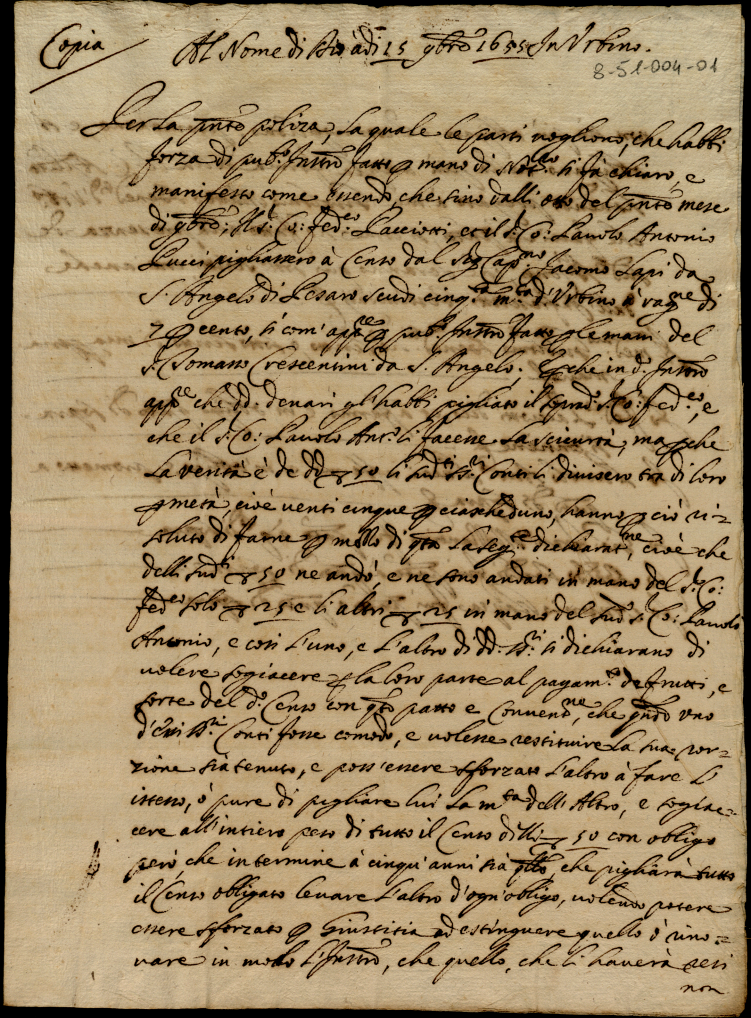 Copia
Al Nome di Dio à dì 15 9bre 1655 In Urbino.
8-51-004-01
Per la pnte poliza, la quale le parti vogliono, che habbi
forza di pub.o Instro fatto p mano di Not.ro si fà chiaro, e
manifesto come essendo, che sino dalli otto del pnte mese
di 9bre, Il s.r Co: Fed.co Pacciotti, et il s.r Co: Pavolo Antonio
Lucci pigliassero à Cento dal Sig.r Cap.no Jacomo Lapi da
S. Angelo di Pesaro scudi cinq.ta m.ta d'Urbino à rag.ne di
7 p cento, si com' app.re p pub.o Instro fatto p le mani del
s.r Tomasso Crescentini da S. Angelo. E pche in d.o Instro
app.re che dd. denari gl'habbi pigliato il pred.o s.r Co: Fed.co, e
che il s.r Co: Pavolo Ant.o li facesse la sicurtà, ma pche
la verità è che dd 50 li sud.ti ss.ri Conti li divisero tra di loro
p metà, cioè venti cinque p ciascheduno, hanno p ciò ri=
soluto di farne p mezzo di q.ta la seg.te dichiarat.ne, cioè che
delli sud.i 50 ne andò, e ne sono andati in mano del s.r Co:
Fed.co solo 25 e li altri 25 in mano del sud.o s.r Co: Pavolo
Antonio, e così l'uno, e l'altro di dd. ss.ri si dichiarano di
volere sogiacere p la loro parte al pagam.to de frutti, e
sorte del d.o Cento con q.to patto e Convent.ne, che q.ndo uno
d'essi ss.ri Conti fosse comodo, e volesse restituire la sua por=
zione sia tenuto, e poss'essere sforzato l'altro à fare l'
istesso, ò pure di pigliare lui la m.tà dell'Altro, e sogia=
cere all'intiero peso di tutto il Cento delli 50 con obligo
però, che in termine à cinqu'anni sia q.llo, che pigliarà tutto
il Cento obligato levare l'altro d'ogn'obligo, volendo potere
essere sforzato p Giustitia ad estinguere quello ò rino=
vare in modo l'Instro, che quello, che li haverà resi
non